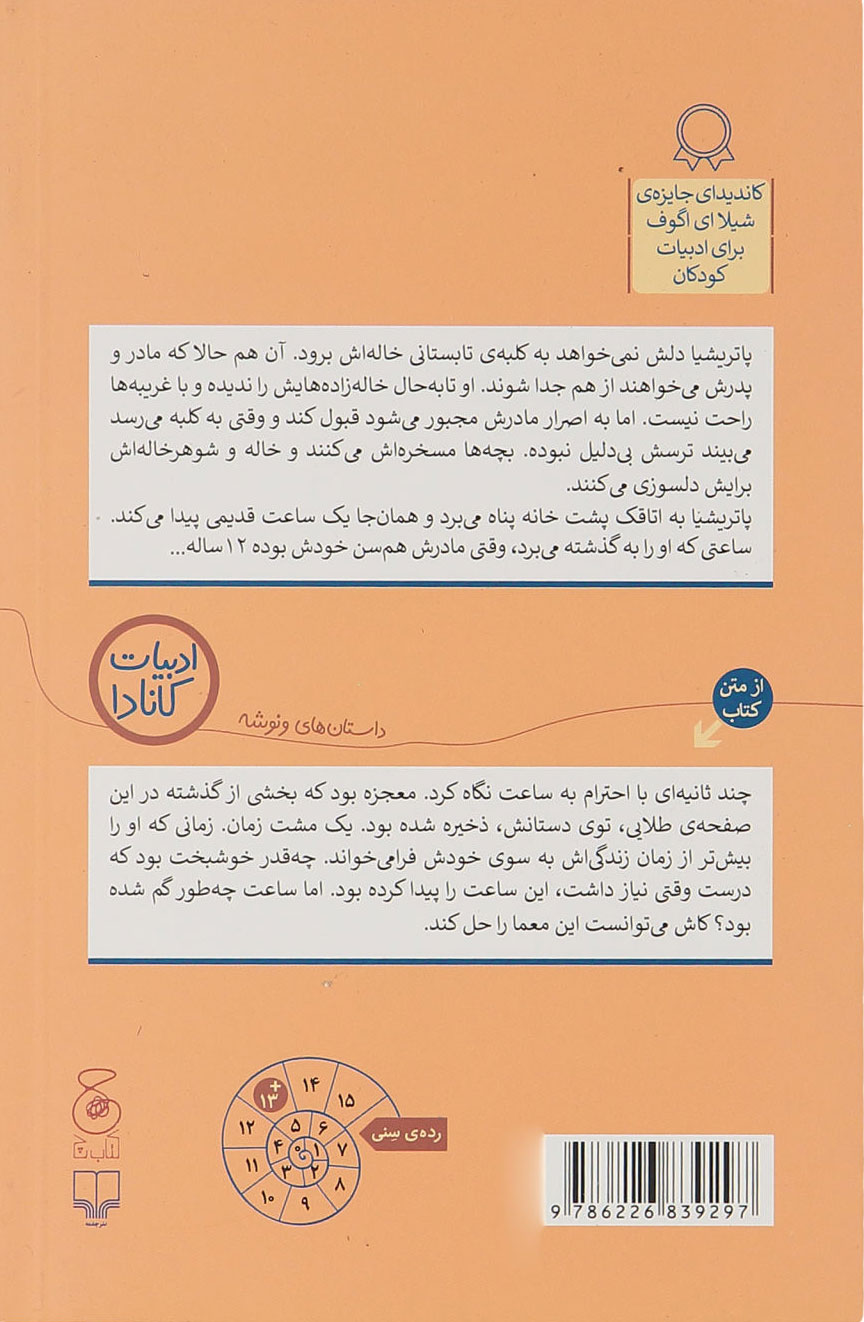 کاندیدای جایزه‌ی
شیلا ای اگوف
برای ادبیات
کودکان
پاتریشیا دلش نمی‌خواهد به کلبه‌ی تابستانی خاله‌اش برود. آن هم حالا که مادر و
پدرش می‌خواهند از هم جدا شوند. او تابه‌حال خاله‌زاده‌هایش را ندیده و با غریبه‌ها
راحت نیست. اما به اصرار مادرش مجبور می‌شود قبول کند و وقتی به کلبه می‌رسد
می‌بیند ترسش بی‌دلیل نبوده. بچه‌ها مسخره‌اش می‌کنند و خاله و شوهرخاله‌اش
برایش دلسوزی می‌کنند.
پاتریشیا به اتاقک پشت خانه پناه می‌برد و همان‌جا یک ساعت قدیمی پیدا می‌کند.
ساعتی که او را به گذشته می‌برد، وقتی مادرش هم‌سن خودش بوده ۱۲ ساله...
ادبیات
کانادا
داستان‌های ونوشه
از متن
کتاب
چند ثانیه‌ای با احترام به ساعت نگاه کرد. معجزه بود که بخشی از گذشته در این
صفحه‌ی طلایی، توی دستانش، ذخیره شده بود. یک مشت زمان. زمانی که او را
بیش‌تر از زمان زندگی‌اش به سوی خودش فرامی‌خواند. چه‌قدر خوشبخت بود که
درست وقتی نیاز داشت، این ساعت را پیدا کرده بود. اما ساعت چه‌طور گم شده
بود؟ کاش می‌توانست این معما را حل کند.
رده‌ی سِنی
۰
۱
۲
۳
۴
۵
۶
۷
۸
۹
۱۰
۱۱
۱۲
+۱۳
۱۴
۱۵
کتاب چ
نشر چشمه
9 786226 839297